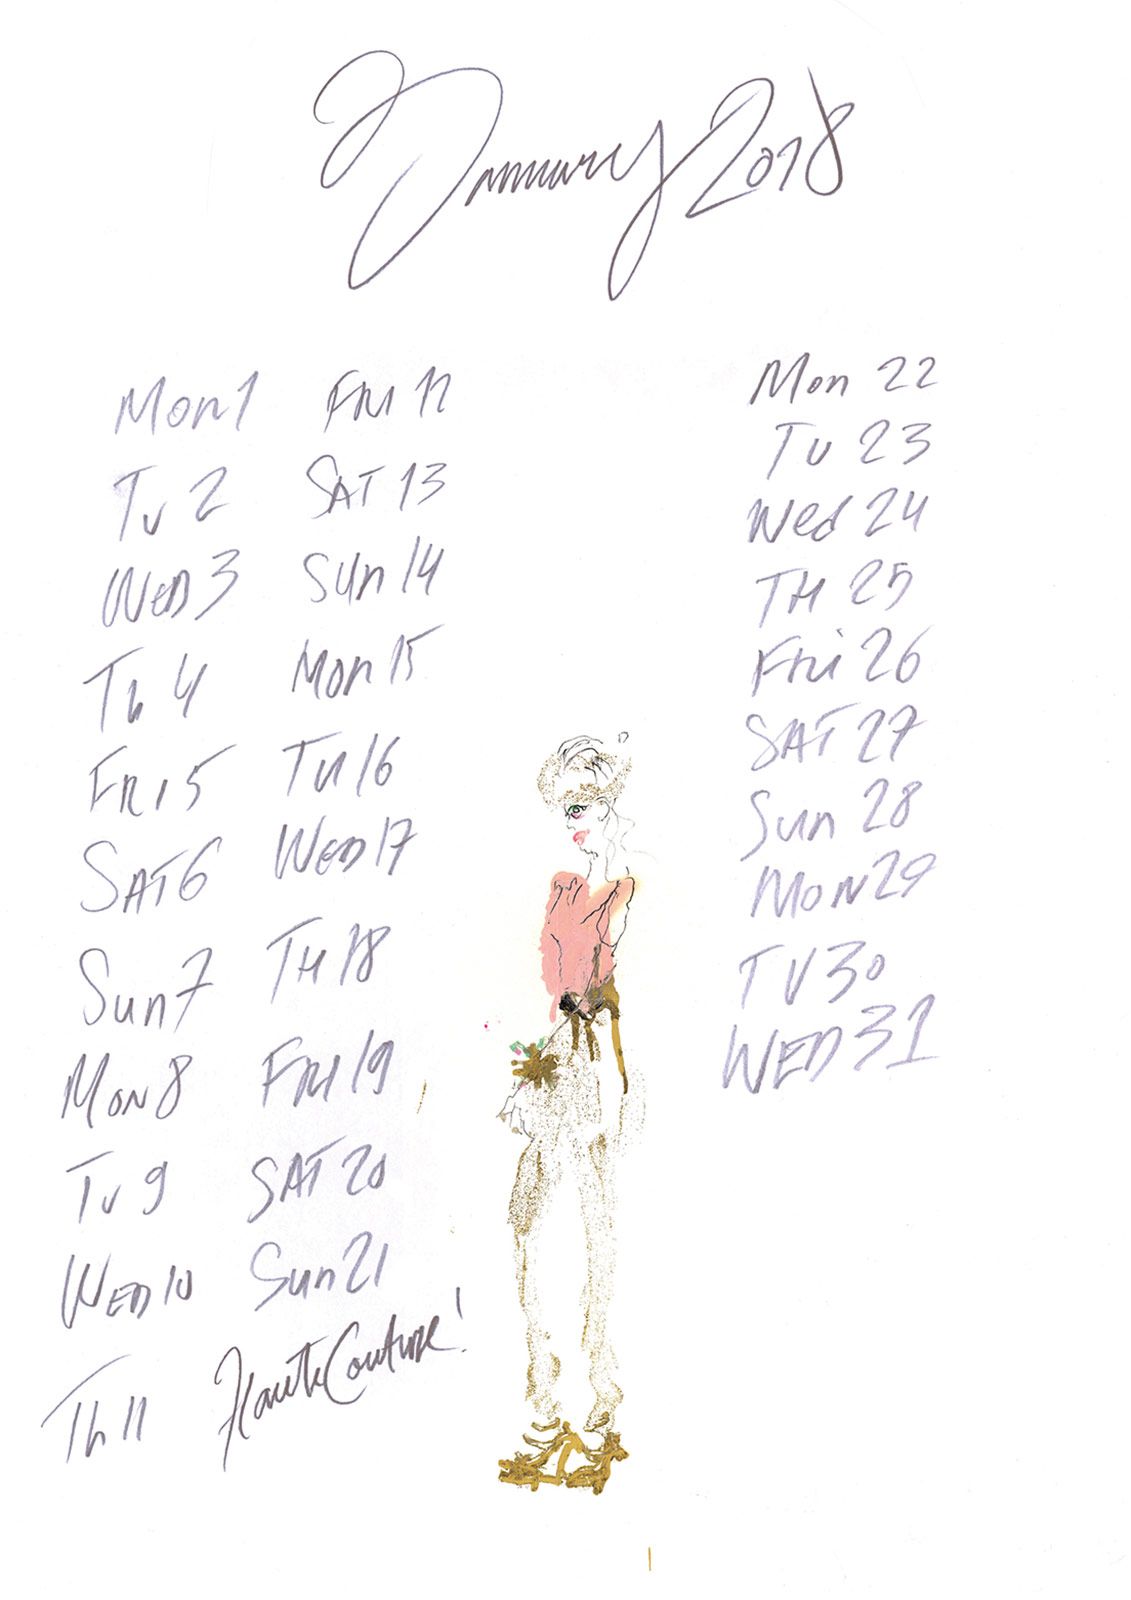 January 2018
Mon 1
Tu 2
Wed 3
Th 4
Fri 5
Sat 6
Sun 7
Mon 8
Tu 9
Wed 10
Th 11
Fri 12
Sat 13
Sun 14
Mon 15
Tu 16
Wed 17
Th 18
Fri 19
Sat 20
Sun 21
Haute Couture!
Mon 22
Tu 23
Wed 24
TH 25
Fri 26
SAT 27
Sun 28
Mon 29
TU 30
WED 31